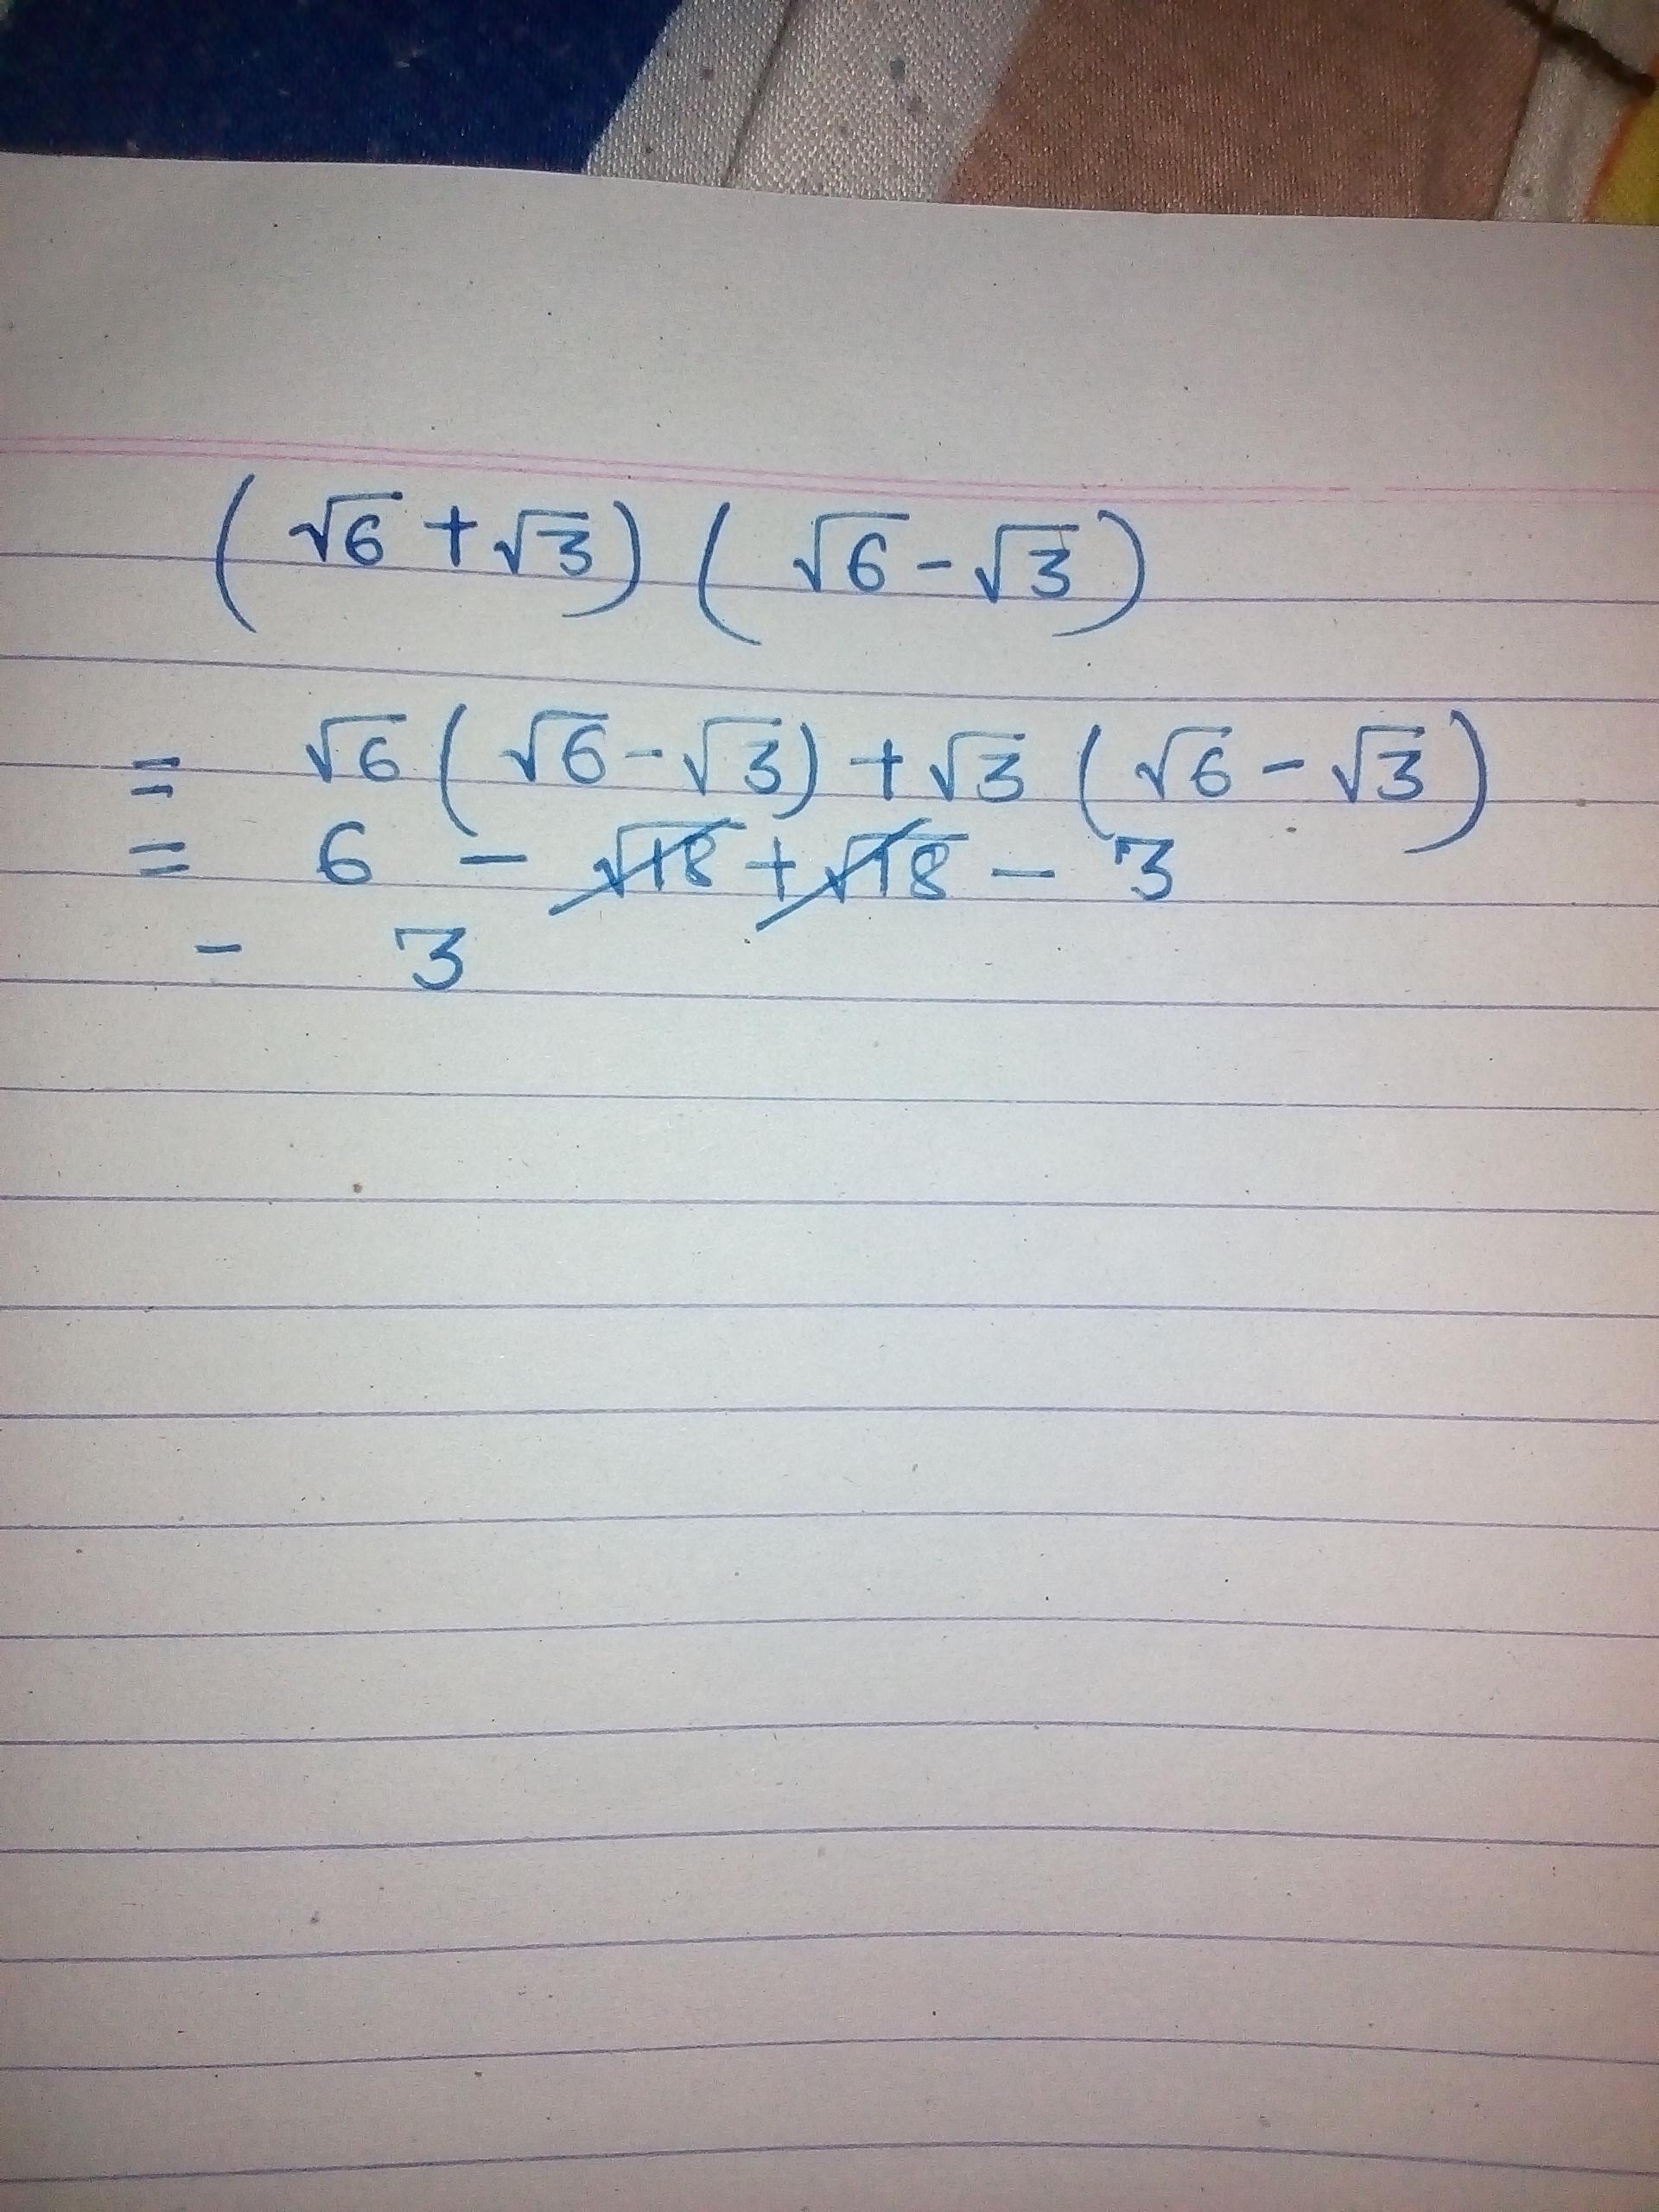 (√6 + √3) (√6 - √3)
= √6 (√6 - √3) + √3 (√6 - √3)
= 6 - √18 + √18 - 3
- 3